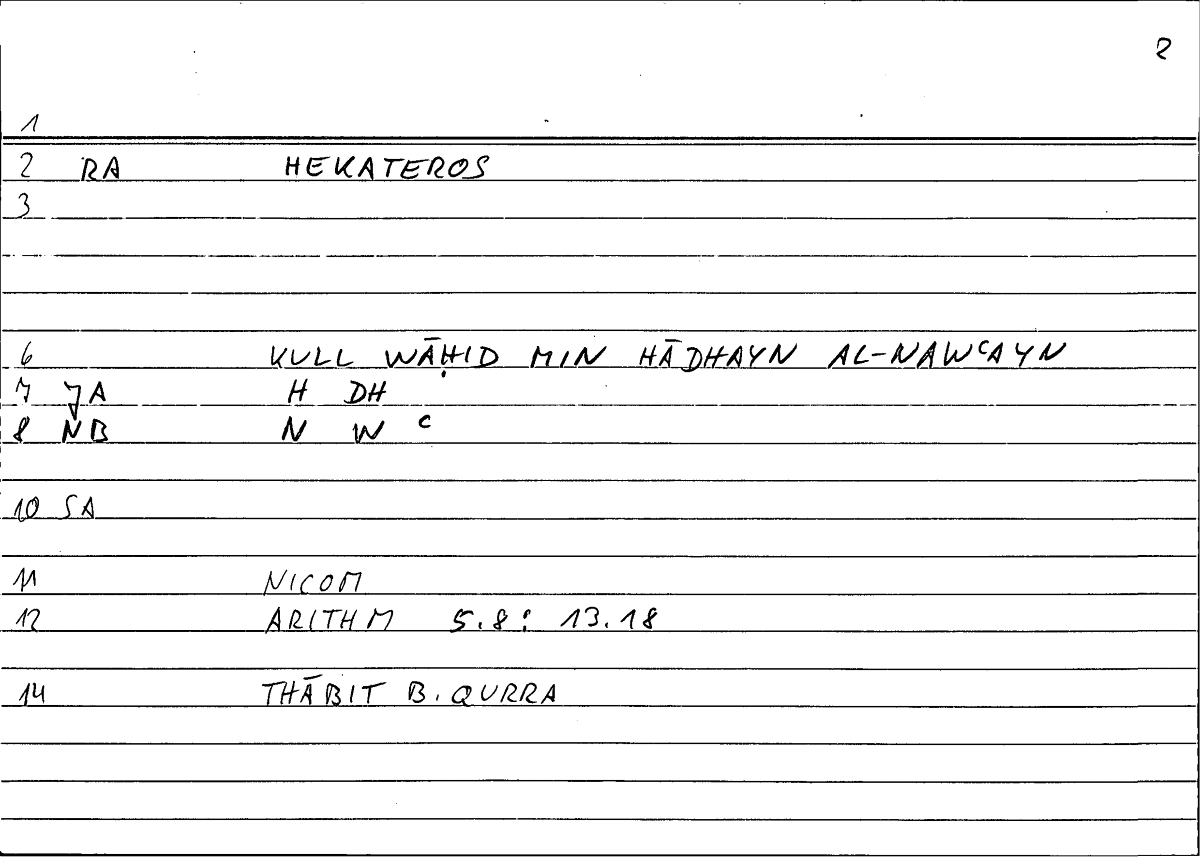 2
1
2 RA HEKATEROS
3
6 KULL WĀḤID MIN HĀDHAYN AL-NAWᶜAYN
7 JA H DH
8 NB N W ᶜ
10 SA
11 NICOM
12 ARITHM 5.8: 13.18
14 THĀBIT B. QURRA